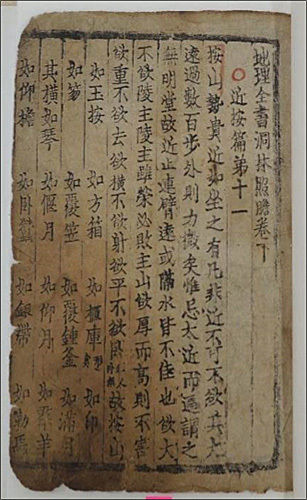 地理全書洞林照膽卷下
近按篇第十一
按山勢貴近如坐之有几非近不可不欲其大
遠過數百步外則力微矣惟忌太近而逼謂之
無明堂故近止連臂遠或隔水皆不佳也欲大
不欲陵主陵主雖榮必敗主山欲厚而高則不害
欲重不欲去欲橫不欲射欲平不欲故按山
如玉按 如方箱 如庫 如印
如笏 如覆笠 如覆鍾釜 如滿月
其橫如琴 如偃月 如仰月 如羊
如仰 如卧 如銀帶 如勒馬